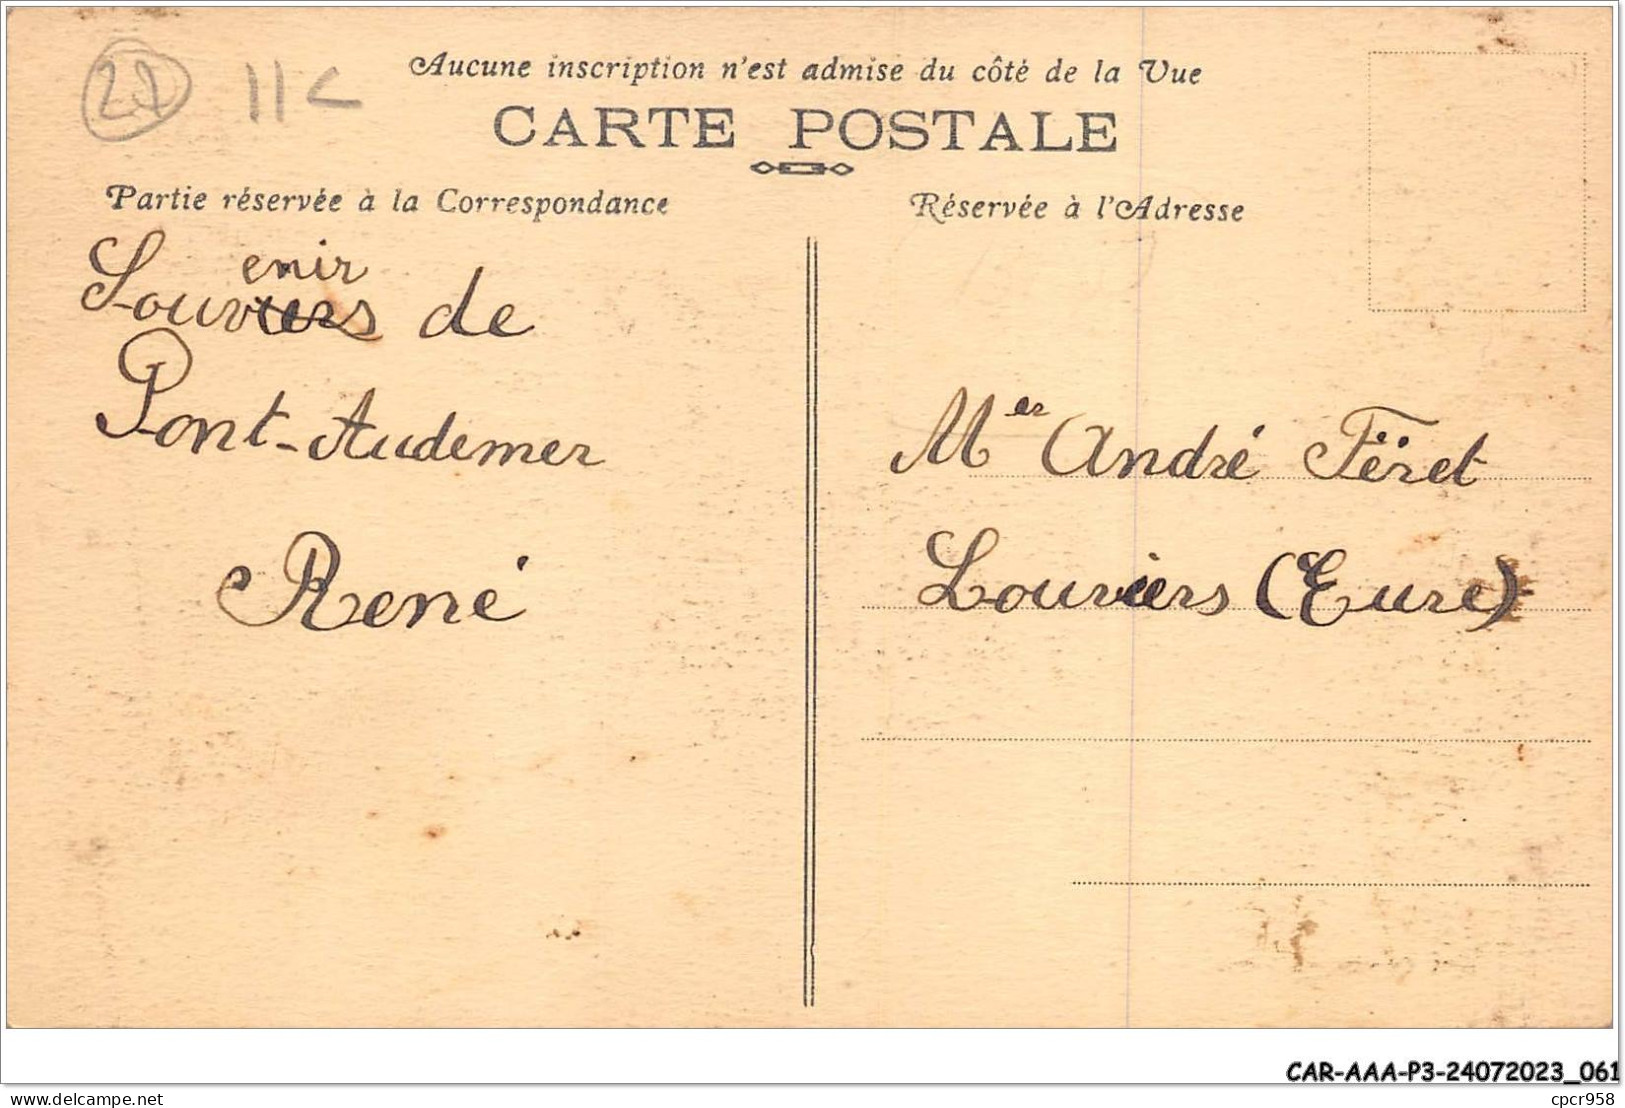 27 11C
Aucune inscription n'est admise du côté de la Vue
CARTE POSTALE
Partie réservée à la Correspondance
enir
Souviers de
Pont-Audemer
René
Réservée à l'Adresse
Mer André Féret
Louviers (Eure)
CAR-AAA-P3-24072023_061
cpcr958